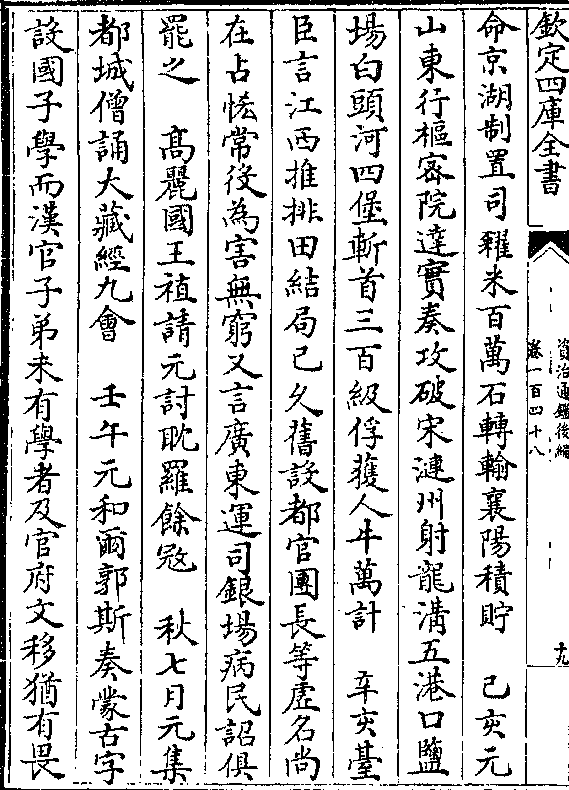 欽定四庫全書
資治通鑑後編
卷一百四十八
十九
命京湖制置司糴米百萬石轉輸襄陽積貯　己亥元
山東行樞密院達實奏攻破宋漣州射龍溝五港口鹽
場白頭河四堡斬首三百級俘獲人牛萬計　辛亥臺
臣言江西推排田結局已久舊設都官團長等虛名尚
在占恡常役為害無窮又言廣東運司銀場病民詔俱
罷之　高麗國王禃請元討耽羅餘冦　秋七月元集
都城僧誦大藏經九會　壬午元和爾郭斯奏蒙古字
設國子學而漢官子弟未有學者及官府文移猶有畏